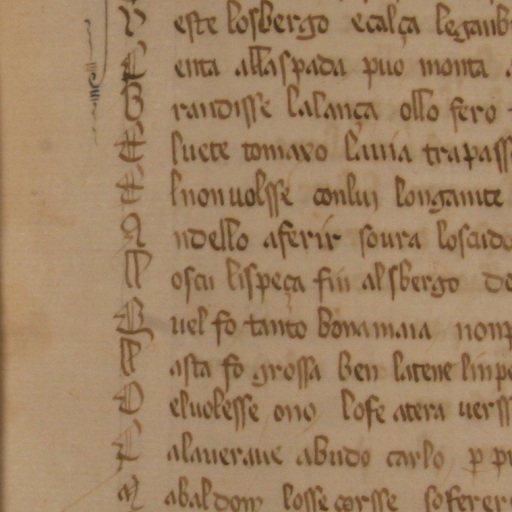 V este losbergo ecalça leganb
C enta allaspada puo monta
B randisse lalança ollo fero
E luete tomaxo lauia trapass
E lnonuolsse conlui longamte
A ndello aferir soura loscudo
M oscu lispeça fin alsbergo de
B uel fo tanto bona maia nonp
M asta fo grossa ben latene linpe
D eluolesse ono lofe atera uerss
C alaueraue abudo carlo p pr
N abaldom losse corsse soferer